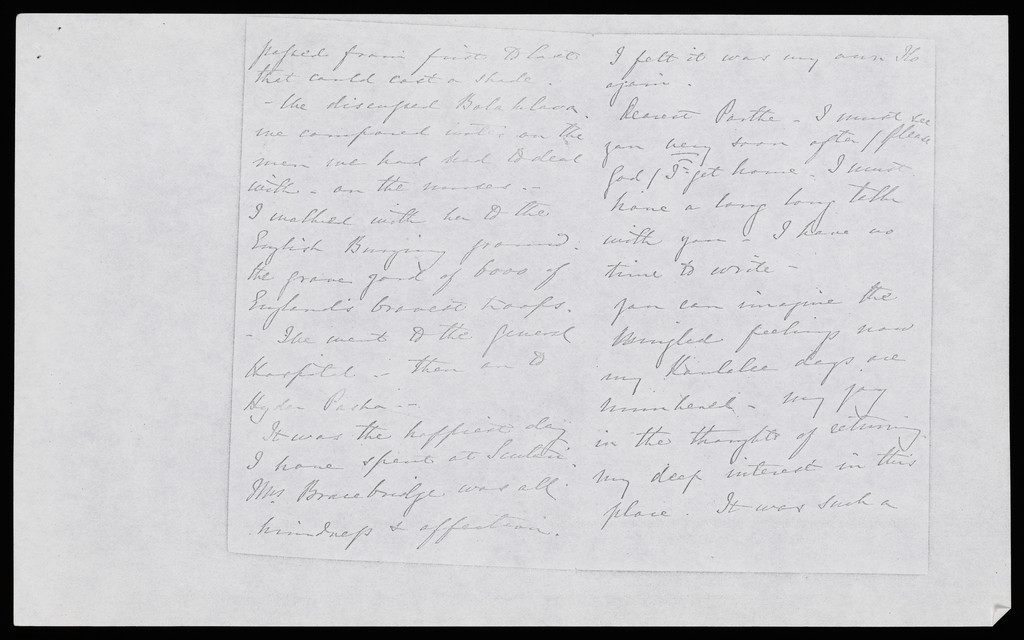 passed from first to last
that could cast a shade.
- We discussed Balaklava,
we compared notes on the
men we had had to deal
with - on the nurses. -
I walked with her to the
English Burying ground.
the grave yard of 6000 of
England's bravest troops.
- She went to the General
Hospital - then on to
Hyder Pasha -
It was the happiest day
I have spent at Scutari.
Mrs Bracebridge was all
kindness & affection.
I felt it was my own Flo
again.
Dearest Parthe - I must see
you very soon after / please
God / I get home. I must
have a long long talk
with you - I have no
time to write -
you can imagine the
mingled feelings now
my Koulalee days are
numbered - my joy
in the thoughts of returning.
my deep interest in this
place. It was such a